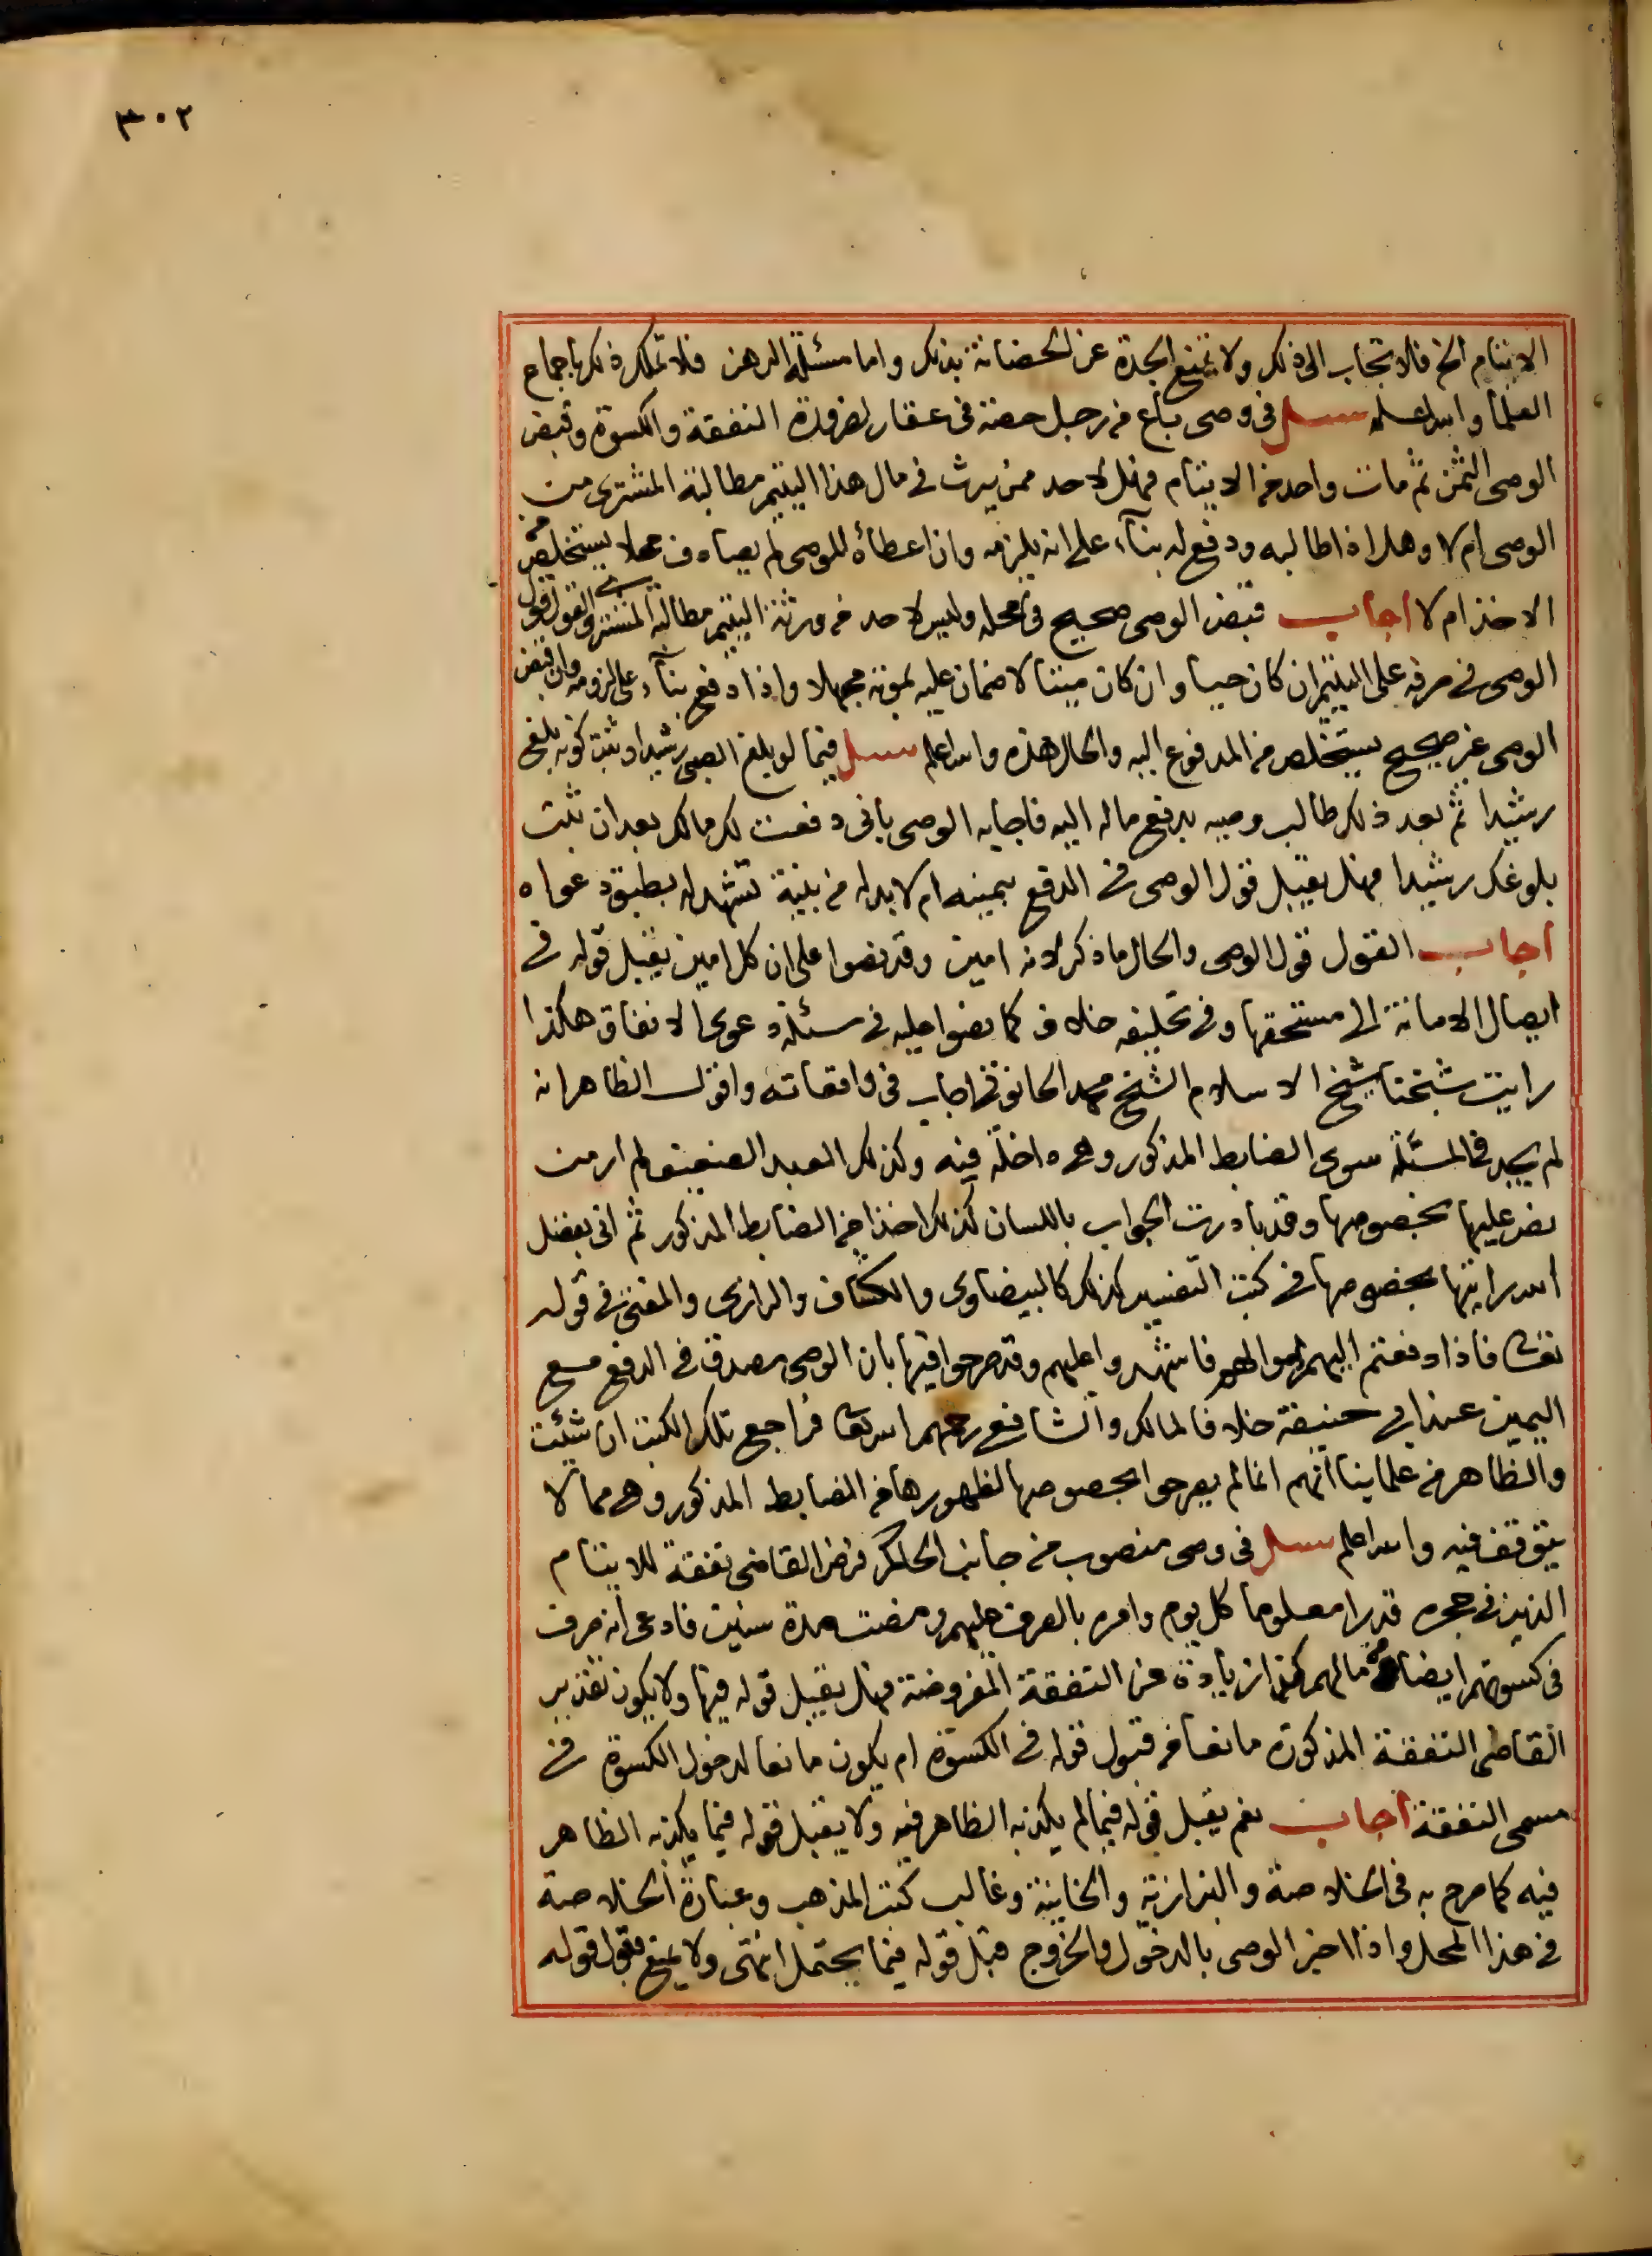 ٣٠٢
الايتام الخ فلا تجاب الى ذلك ولا تمنع الجدة عن الحضانة بذلك واما مسئلة الرهن فلا تملك ذلك باجماع
العلما والله اعلم سئل فى وصى باع من رجل حصة فى عقار لضرورة النفقة والكسوة وقبض
الوصى الثمن ثم مات واحد من الايتام فهل لاحد ممن يرث فى مال هذا اليتيم مطالبة المشترى من
الوصى ام لا وهل اذا طالبه ودفع له بناء على انه يلزمه وان اعطاه للوصى لم يصادف محلا يستخلص من
الاخذ ام لا اجاب قبض الوصى صحيح فى محله وليس لاحد من ورثة اليتيم مطالبة المشترى والقول قول
الوصى فى صرفه على اليتيم ان كان حيا وان كان ميتا لا ضمان عليه بموته مجهلا واذا دفع بناء على لزومه وان قبض
الوصى غير صحيح يستخلص من المدفوع اليه والحال هذه والله اعلم سئل فيما لو بلغ الصبى رشيدا وثبت كونه بلغ
رشيدا ثم بعد ذلك طالب وصيه بدفع ماله اليه فاجابه الوصى بانى دفعت لك مالك بعد ان ثبت
بلوغك رشيدا فهل يقبل قول الوصى فى الدفع بيمينه ام لا بد له من بينة تشهد له بطبق دعواه
اجاب القول قول الوصى والحال ما ذكر لانه امين وقد نصوا على ان كل امين يقبل قوله فى
ايصال الامانة الى مستحقها وفى تحليفه خلاف كما نصوا عليه فى مسئلة دعوى الانفاق هكذا
رايت شيخنا شيخ الاسلام الشيخ محمد الحانوتى اجاب فى واقعاته واقول الظاهر انه
لم يجد فى المسئلة سوى الضابط المذكور وهى داخلة فيه وكذلك العبد الضعيف لم ار من
نص عليها بخصوصها وقد بادرت الجواب باللسان كذلك اخذا من الضابط المذكور ثم انى بفضل
الله رايتها بخصوصها فى كتب التفسير كذلك كالبيضاوى والكشاف والرازى والمفتى فى قوله
تعالى فاذا دفعتم اليهم اموالهم فاشهدوا عليهم وقد صرحوا فيها بان الوصى مصدق فى الدفع مع
اليمين عند ابى حنيفة خلافا لمالك والشافعى رحمهم الله تعالى فراجع تلك الكتب ان شئت
والظاهر من علماينا انهم انما لم يصرحوا بخصوصها لظهورها من الضابط المذكور وهى مما لا
يتوقف فيه والله اعلم سئل فى وصى منصوب من جانب الحاكم فرض القاضى نفقة للايتام
الذين فى حجره قدرا معلوما كل يوم وامره بالصرف عليهم ومضت مدة سنين فادعى انه صرف
فى كسوتهم ايضا من مالهم كذا زيادة عن النفقة المفروضة فهل يقبل قوله فيها ولا يكون تقدير
القاضى النفقة المذكورة مانعا من قبول قوله فى الكسوة ام يكون مانعا لدخول الكسوة فى
مسمى النفقة اجاب نعم يقبل قوله فيما لم يكذبه الظاهر فيه ولا يقبل قوله فيما يكذبه الظاهر
فيه كما صرح به فى الخلاصة والبزازية والخانية وغالب كتب المذهب وعبارة الخلاصة
فى هذا المحل واذا اخبر الوصى بالدخول والخروج قبل قوله فيما يحتمل انتهى ولا يمنع قبول قوله